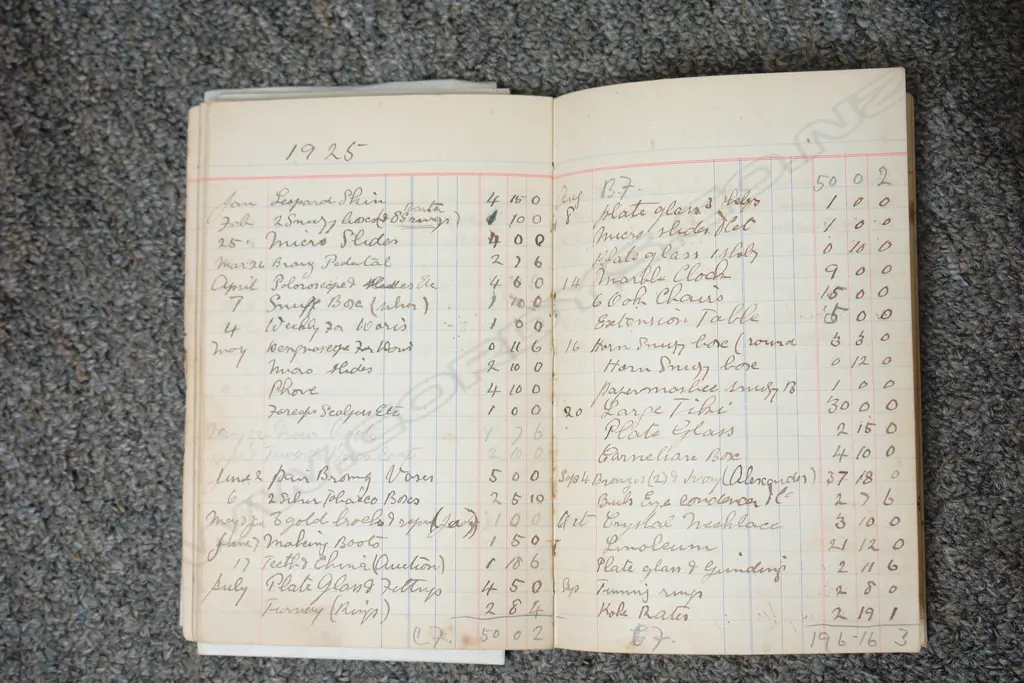 1925
Jan Leopard Skin 4 15 0
Feb 2 Snuff boxes (& Earrings) 1 10 0
25 Micro Slides 4 0 0
Mar 26 Pedestal 2 7 6
April Etc 4 6 0
7 Snuff Box (silver) 1 10 0
4 Weekly for 1 0 0
May 0 11 6
Micro slides 2 10 0
Phone 4 10 0
Forceps Scalpers Etc 1 0 0
1 7 6
2 10 0
June 2 Pair Vases 5 0 0
6 2 Silver Tobacco Boxes 2 5 10
May 27 3 gold & 1 0 0
June 7 Making Boots 1 5 0
17 Teeth & China (Auction) 1 18 6
July Plate Glass & Fittings 4 5 0
(Rings) 2 8 4
C F. 50 0 2
Aug B F. 50 0 2
8 Plate glass 3 1 0 0
Micro slides 1 0 0
Plate glass 0 10 0
14 Marble Clock 9 0 0
6 Oak Chairs 15 0 0
Extension Table 5 0 0
16 Horn Snuff box (round 3 3 0
Horn Snuff box 0 12 0
Papermashee Snuff B 1 0 0
20 Large Tiki 30 0 0
Plate Glass 2 15 0
Carnelian Box 4 10 0
Sep 4 Bronzes (2) & Ivory (Alexander) 37 18 0
Bulls Eye condenser 2 7 6
Oct Crystal Necklace 3 10 0
Linoleum 21 12 0
Plate glass & Grinding 2 11 6
Sep rings 2 8 0
Rates 2 19 1
C F. 196-16 3